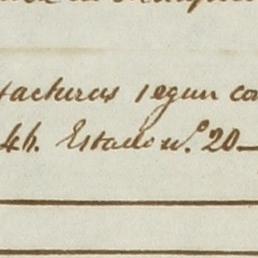 facturas segun co
46. Estado n.º 20